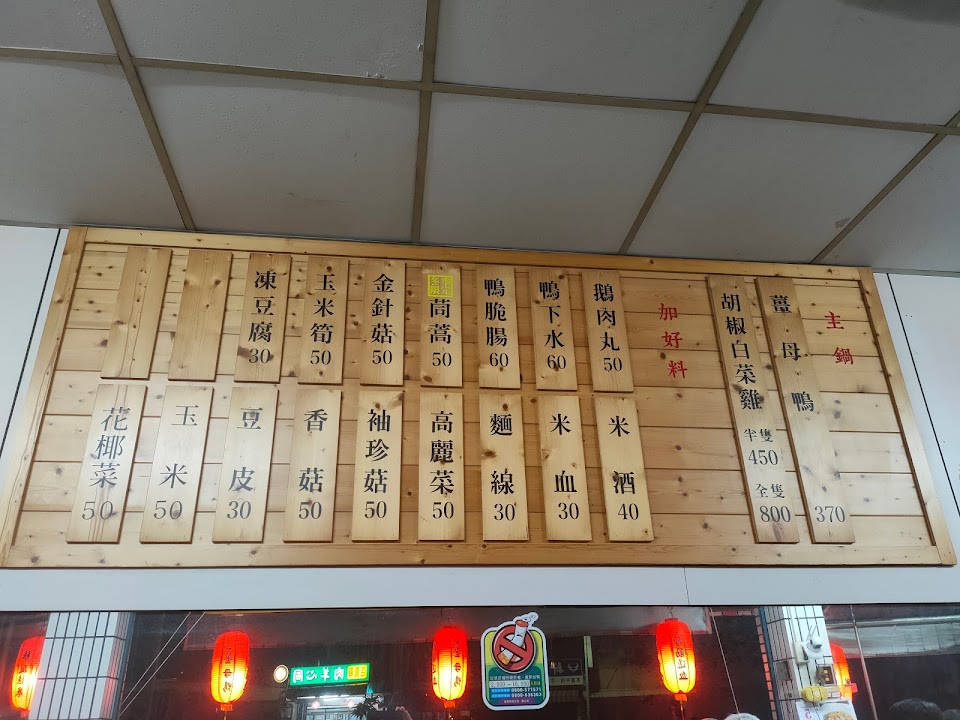 主鍋
薑母鴨 370
胡椒白菜雞 半隻 450 全隻 800
加好料
鵝肉丸 50
鴨下水 60
鴨脆腸 60
茼蒿 50
金針菇 50
玉米筍 50
凍豆腐 30
米酒 40
米血 30
麵線 30
高麗菜 50
袖珍菇 50
香菇 50
豆皮 30
玉米 50
花椰菜 50
同心羊肉
0800-571571
0800-636363